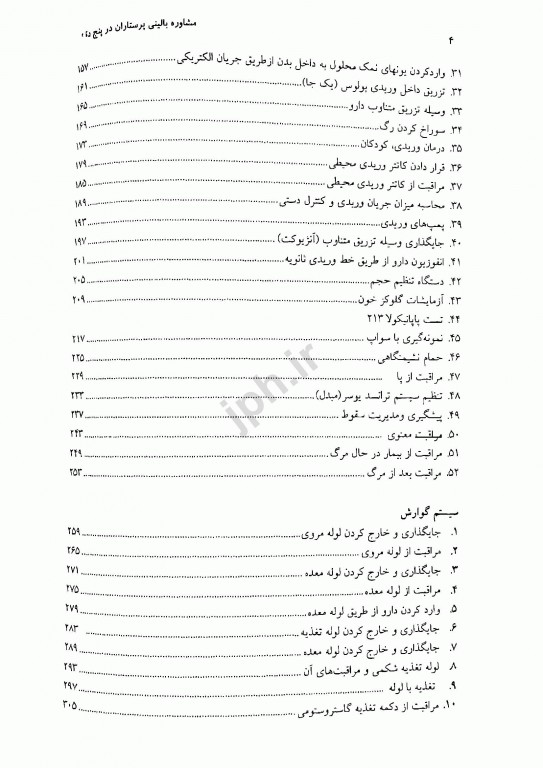 مشاوره بالینی پرستاران در پنج
۴
۳۱. واردکردن یونهای نمک محلول به داخل بدن ازطریق جریان الکتریکی ۱۵۷
۳۲. تزریق داخل وریدی بولوس (یک جا) ۱۶۱
۳۳. وسیله تزریق متناوب دارو ۱۶۵
۳۴. سوراخ کردن رگ ۱۶۹
۳۵. درمان وریدی، کودکان ۱۷۳
۳۶. قرار دادن کاتتر وریدی محیطی ۱۷۹
۳۷. مراقبت از کاتتر وریدی محیطی ۱۸۵
۳۸. محاسبه میزان جریان وریدی و کنترل دستی ۱۸۹
۳۹. پمپ‌های وریدی ۱۹۳
۴۰. جایگذاری وسیله تزریق متناوب (آنژیوکت) ۱۹۷
۴۱. انفوزیون دارو از طریق خط وریدی ثانویه ۲۰۱
۴۲. دستگاه تنظیم حجم ۲۰۵
۴۳. آزمایشات گلوکز خون ۲۰۹
۴۴. تست پاپانیکولا ۲۱۳
۴۵. نمونه‌گیری با سواپ ۲۱۷
۴۶. حمام نشیمنگاهی ۲۲۵
۴۷. مراقبت از پا ۲۲۹
۴۸. تنظیم سیستم ترانسد یوسر(مبدل) ۲۳۳
۴۹. پیشگیری ومدیریت سقوط ۲۳۷
۵۰. مراقبت معنوی ۲۴۳
۵۱. مراقبت از بیمار در حال مرگ ۲۴۹
۵۲. مراقبت بعد از مرگ ۲۵۳
سیستم گوارش
۱. جایگذاری و خارج کردن لوله مروی ۲۵۹
۲. مراقبت از لوله مروی ۲۶۵
۳. جایگذاری و خارج کردن لوله معده ۲۷۱
۴. مراقبت از لوله معده ۲۷۵
۵. وارد کردن دارو از طریق لوله معده ۲۷۹
۶. جایگذاری و خارج کردن لوله تغذیه ۲۸۳
۷. جایگذاری و خارج کردن لوله معده ۲۸۹
۸. لوله تغذیه شکمی و مراقبت‌های آن ۲۹۳
۹. تغذیه با لوله ۲۹۷
۱۰. مراقبت از دکمه تغذیه گاستروستومی ۳۰۵
jph.ir